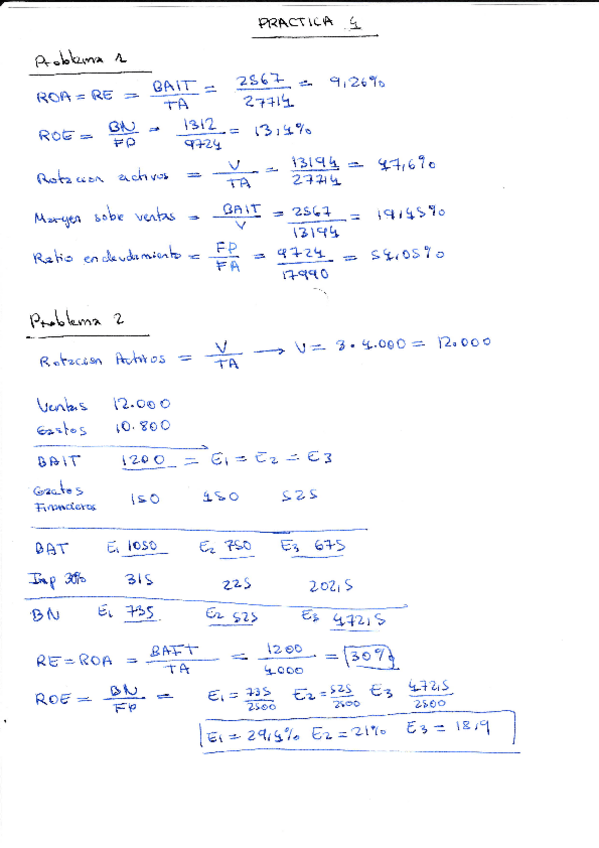 PRACTICA 4
Problema 1
ROA = RE = BAIT / TA = 2567 / 27714 = 9,26%
ROE = BN / FP = 1312 / 9724 = 13,4%
Rotacion activos = V / TA = 13194 / 27714 = 47,6%
Margen sobe ventas = BAIT / V = 2567 / 13194 = 19,45%
Ratio endeudamiento = FP / FA = 9724 / 17990 = 54,05%
Problema 2
Rotacion Activos = V / TA → V = 3 · 4.000 = 12.000
Ventas 12.000
Gastos 10.800
BAIT 1200 = E1 = E2 = E3
Gastos Financieros 150 450 525
BAT E1 1050 E2 750 E3 675
Imp 30% 315 225 202,5
BN E1 735 E2 525 E3 472,5
RE = ROA = BAIT / TA = 1200 / 4.000 = 30%
ROE = BN / FP = E1 = 735 / 2500 E2 = 525 / 2500 E3 472,5 / 2500
E1 = 29,4% E2 = 21% E3 = 18,9